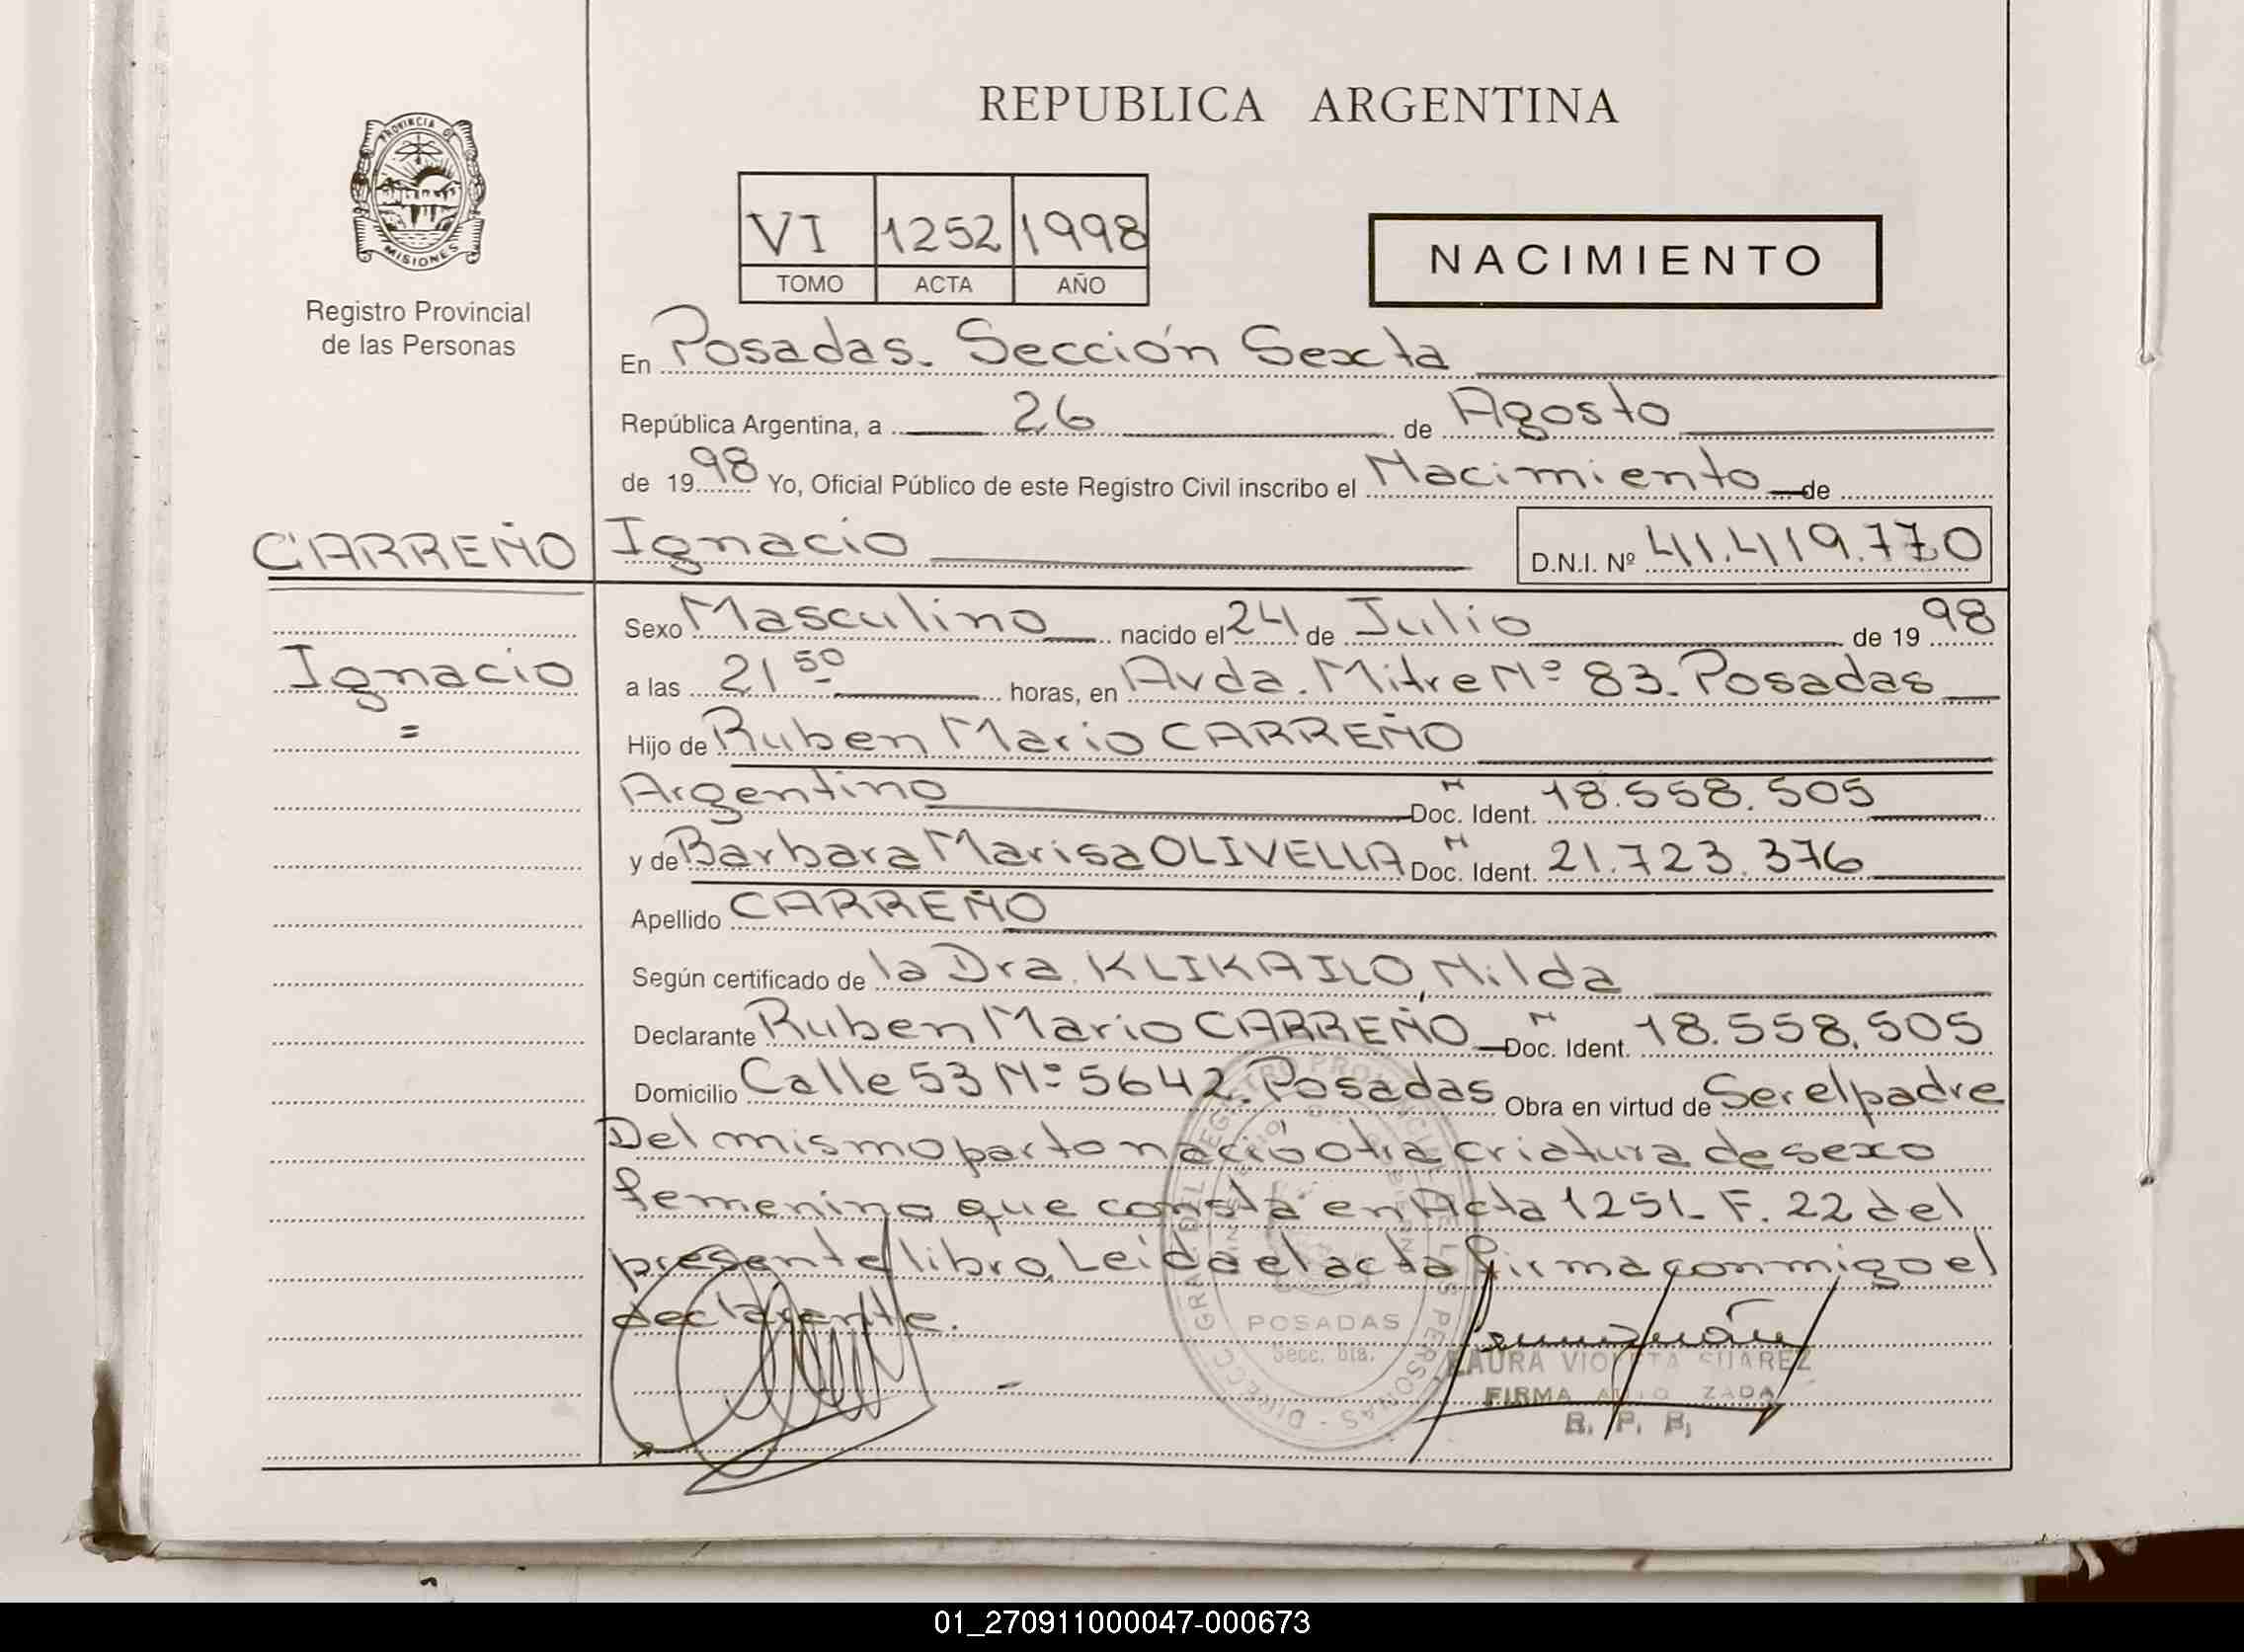 REPUBLICA ARGENTINA
PROVINCIA DE
MISIONES
Registro Provincial
de las Personas
VI 1252 1998
TOMO ACTA AÑO
NACIMIENTO
En Posadas. Sección Sexta
República Argentina, a 26 de Agosto
de 1998 Yo, Oficial Público de este Registro Civil inscribo el Nacimiento de
CARREÑO Ignacio D.N.I. Nº 41.419.770
Sexo Masculino nacido el 24 de Julio de 1998
Ignacio a las 21 50 horas, en Avda. Mitre Nº 83. Posadas
= Hijo de Ruben Mario CARREÑO
Argentino Doc. N Ident. 18.558.505
y de Barbara Marisa OLIVELLA Doc. N Ident. 21.723.376
Apellido CARREÑO
Según certificado de la Dra. KLIKAILO, Nilda
Declarante Ruben Mario CARREÑO Doc. N Ident. 18.558.505
Domicilio Calle 53 Nº 5642. Posadas Obra en virtud de Ser el padre
Del mismo parto nació otra criatura de sexo
femenino que consta en Acta 1251- F. 22 del
presente libro. Leída el acta firma conmigo el
declarante.
POSADAS
Secc. 6ta.
LAURA VIOLETA SUAREZ
FIRMA AUTORIZADA
R. P. P.
01_270911000047-000673